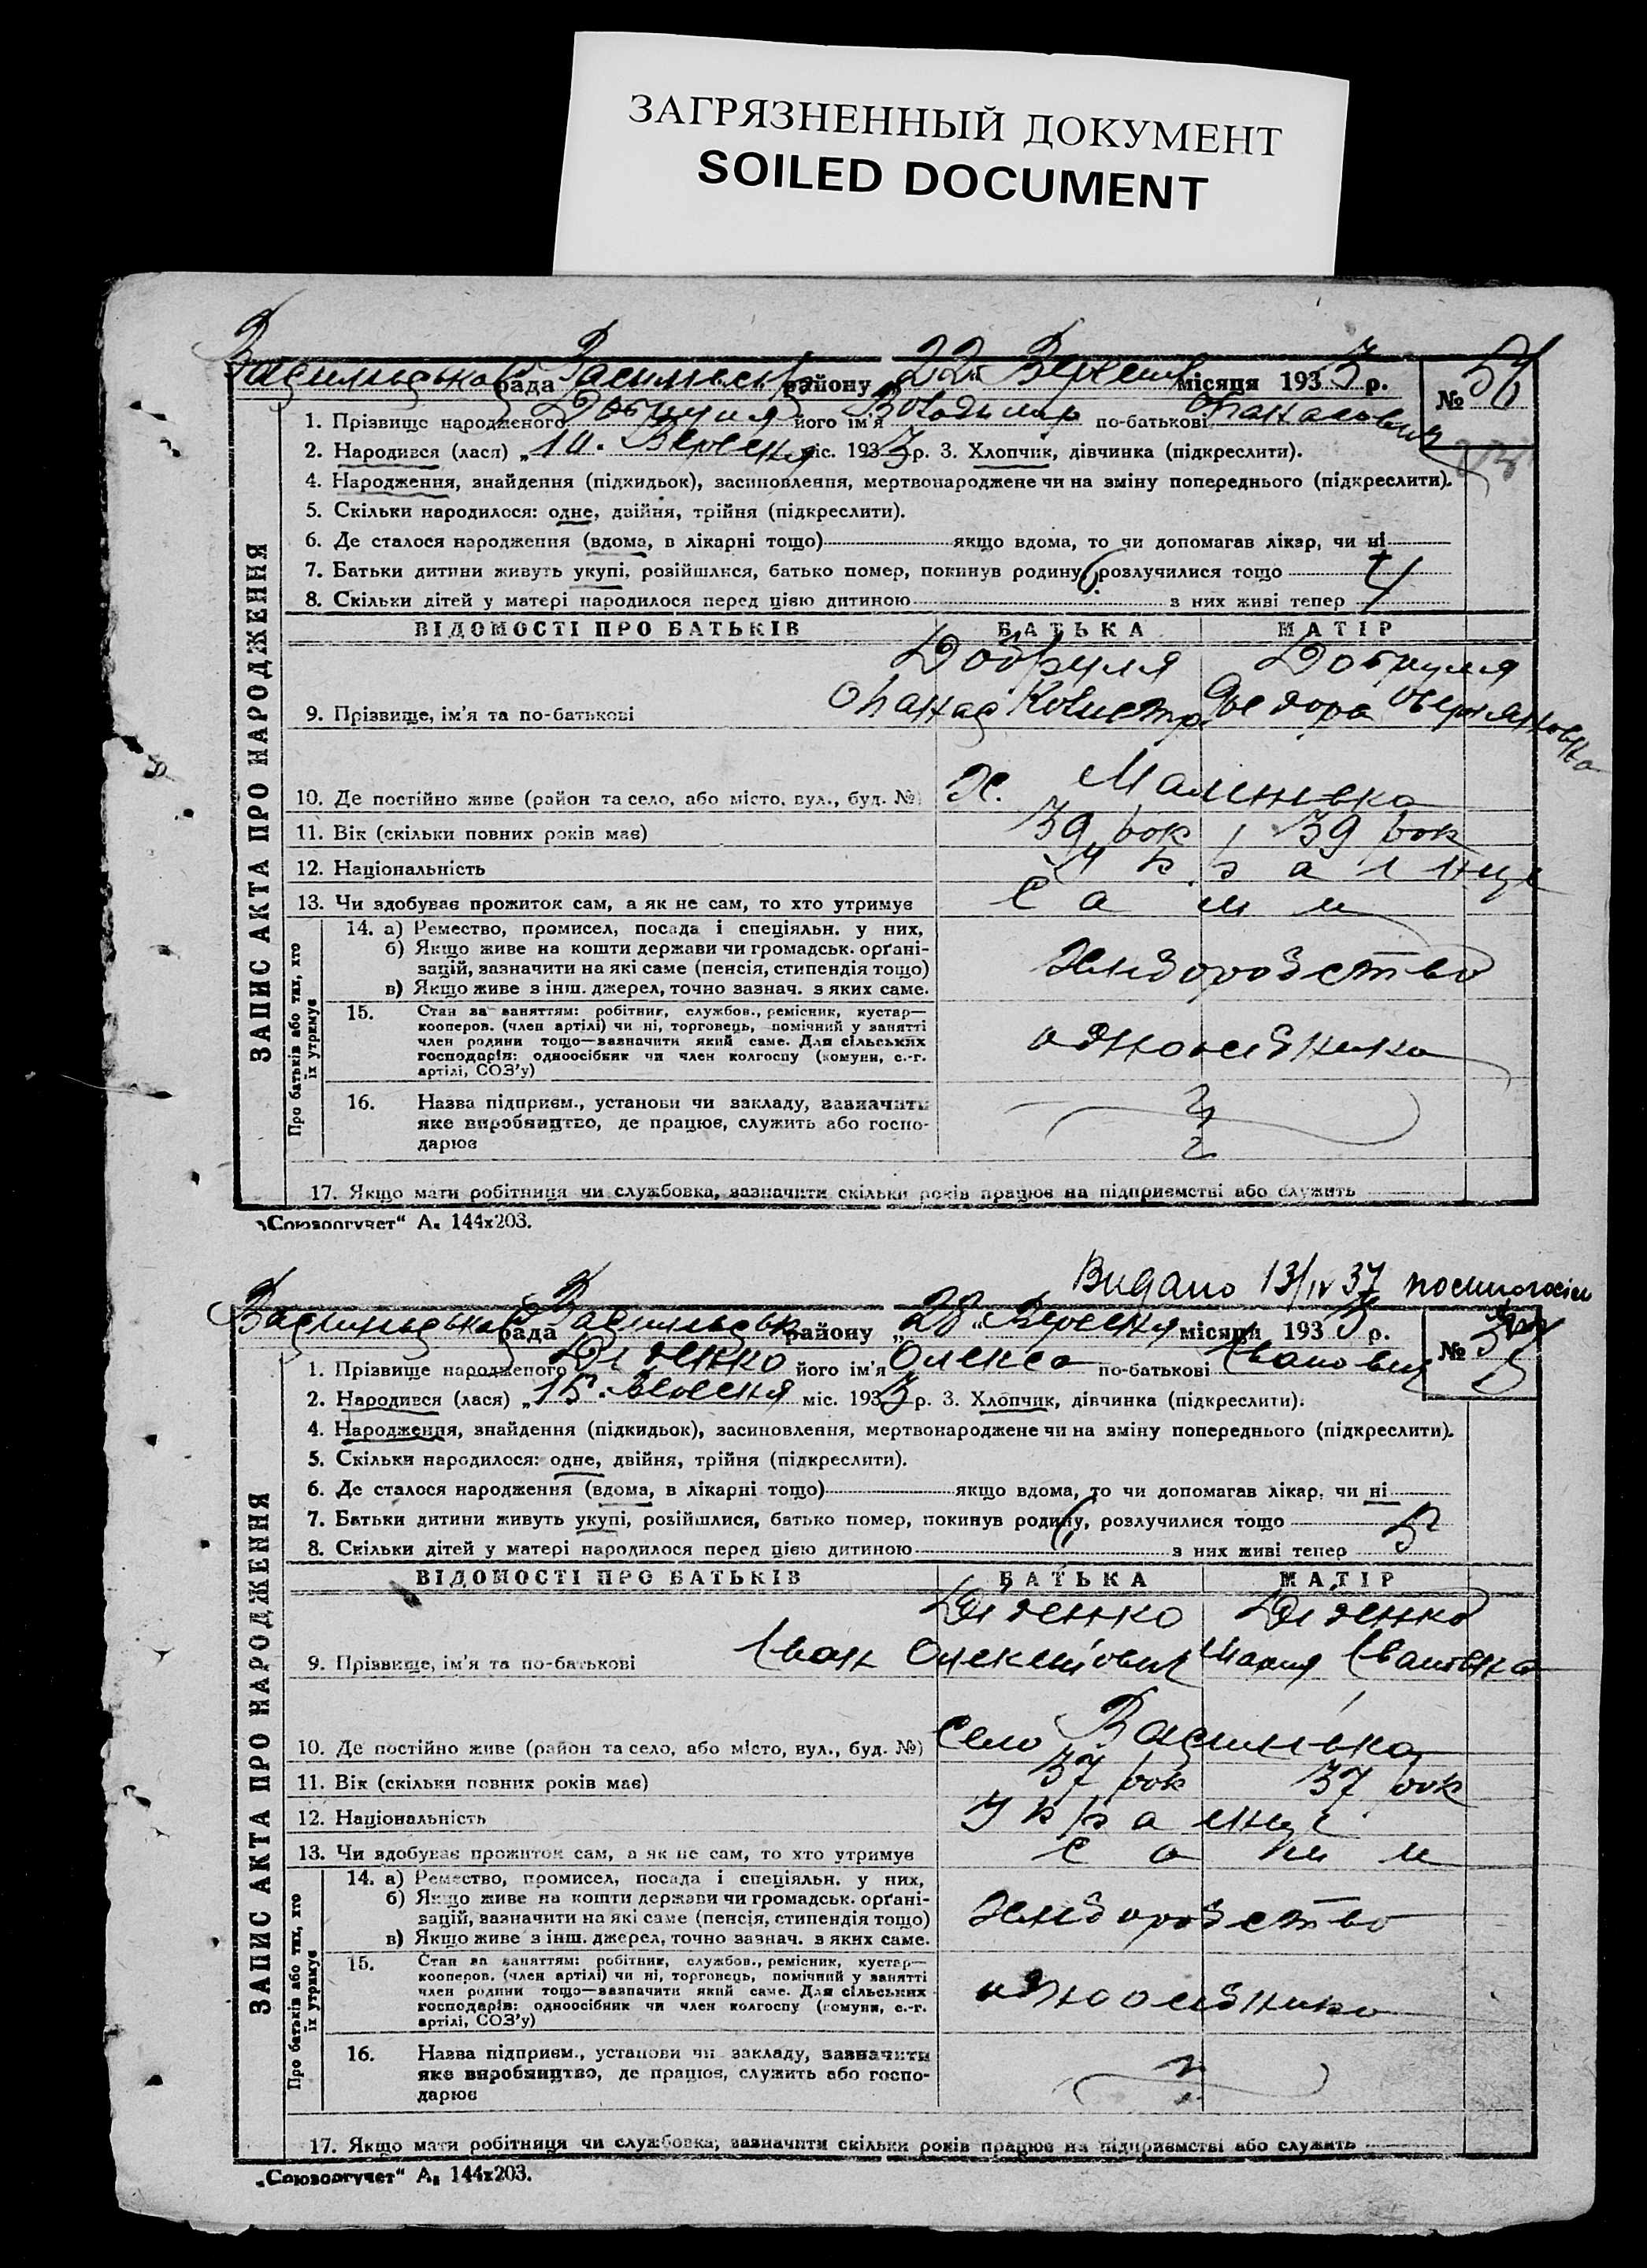 ЗАГРЯЗНЕННЫЙ ДОКУМЕНТ
SOILED DOCUMENT
рада району „22“ Вересня місяця 1933 р. №
1. Прізвище народженого Добруля його ім'я Володимир по-батькові Опанасович
2. Народився (лася) „10. Вересня міс. 1933 р. 3. Хлопчик, дівчинка (підкреслити).
4. Народження, знайдення (підкидьок), засиновлення, мертвонароджене чи на зміну попереднього (підкреслити).
5. Скільки народилося: одне, двійня, трійня (підкреслити).
6. Де сталося народження (вдома, в лікарні тощо) якщо вдома, то чи допомагав лікар, чи ні
7. Батьки дитини живуть укупі, розійшлися, батько помер, покинув родину, розлучилися тощо
8. Скільки дітей у матері народилося перед цією дитиною 6 з них живі тепер 4
ВІДОМОСТІ ПРО БАТЬКІВ БАТЬКА МАТІР
Добруля Добруля
9. Прізвище, ім'я та по-батькові Опанас
10. Де постійно живе (район та село, або місто, вул., буд. №) Х. Малинівка
11. Вік (скільки повних років має) 39 рок 39 рок
12. Національність Українці
13. Чи здобуває прожиток сам, а як не сам, то хто утримує Сами
14. а) Ремество, промисел, посада і спеціяльн. у них,
б) Якщо живе на кошти держави чи громадськ. орґані-
зацій, зазначити на які саме (пенсія, стипендія тощо)
в) Якщо живе з інш. джерел, точно зазнач. з яких саме.
Хліборобство
15. Стан за заняттям: робітник, службов., ремісник, кустар—
кооперов. (член артілі) чи ні, торговець, помічний у занятті
член родини тощо—зазначити який саме. Для сільських
господарів: одноосібник чи член колгоспу (комуни, с.-г.
артілі, СОЗ'у)
одноосібники
16. Назва підприєм., установи чи закладу, зазначити
яке виробництво, де працює, служить або госпо-
дарює
17. Якщо мати робітниця чи службовка, зазначити скільки років працює на підприємстві або служить
ЗАПИС АКТА ПРО НАРОДЖЕННЯ
Про батьків або тих, хто
їх утримує
„Союзоргучет“ А. 144х203.
Видано 13/IV 37
рада району „28“ Вересня місяця 1933 р. №
1. Прізвище народженого Діденко його ім'я Олекса по-батькові Іванович
2. Народився (лася) „15. Вересня міс. 1933 р. 3. Хлопчик, дівчинка (підкреслити).
4. Народження, знайдення (підкидьок), засиновлення, мертвонароджене чи на зміну попереднього (підкреслити).
5. Скільки народилося: одне, двійня, трійня (підкреслити).
6. Де сталося народження (вдома, в лікарні тощо) якщо вдома, то чи допомагав лікар, чи ні
7. Батьки дитини живуть укупі, розійшлися, батько помер, покинув родину, розлучилися тощо
8. Скільки дітей у матері народилося перед цією дитиною 6 з них живі тепер 5
ВІДОМОСТІ ПРО БАТЬКІВ БАТЬКА МАТІР
Діденко Діденко
9. Прізвище, ім'я та по-батькові Іван Олексійович Мария Івановна
10. Де постійно живе (район та село, або місто, вул., буд. №) Село Василівка
11. Вік (скільки повних років має) 37 рок 37 рок
12. Національність Українці
13. Чи здобуває прожиток сам, а як не сам, то хто утримує Сами
14. а) Ремество, промисел, посада і спеціяльн. у них,
б) Якщо живе на кошти держави чи громадськ. орґані-
зацій, зазначити на які саме (пенсія, стипендія тощо)
в) Якщо живе з інш. джерел, точно зазнач. з яких саме.
Хліборобство
15. Стан за заняттям: робітник, службов., ремісник, кустар—
кооперов. (член артілі) чи ні, торговець, помічний у занятті
член родини тощо—зазначити який саме. Для сільських
господарів: одноосібник чи член колгоспу (комуни, с.-г.
артілі, СОЗ'у)
одноосібники
16. Назва підприєм., установи чи закладу, зазначити
яке виробництво, де працює, служить або госпо-
дарює
17. Якщо мати робітниця чи службовка, зазначити скільки років працює на підприємстві або служить
ЗАПИС АКТА ПРО НАРОДЖЕННЯ
Про батьків або тих, хто
їх утримує
„Союзоргучет“ А. 144х203.